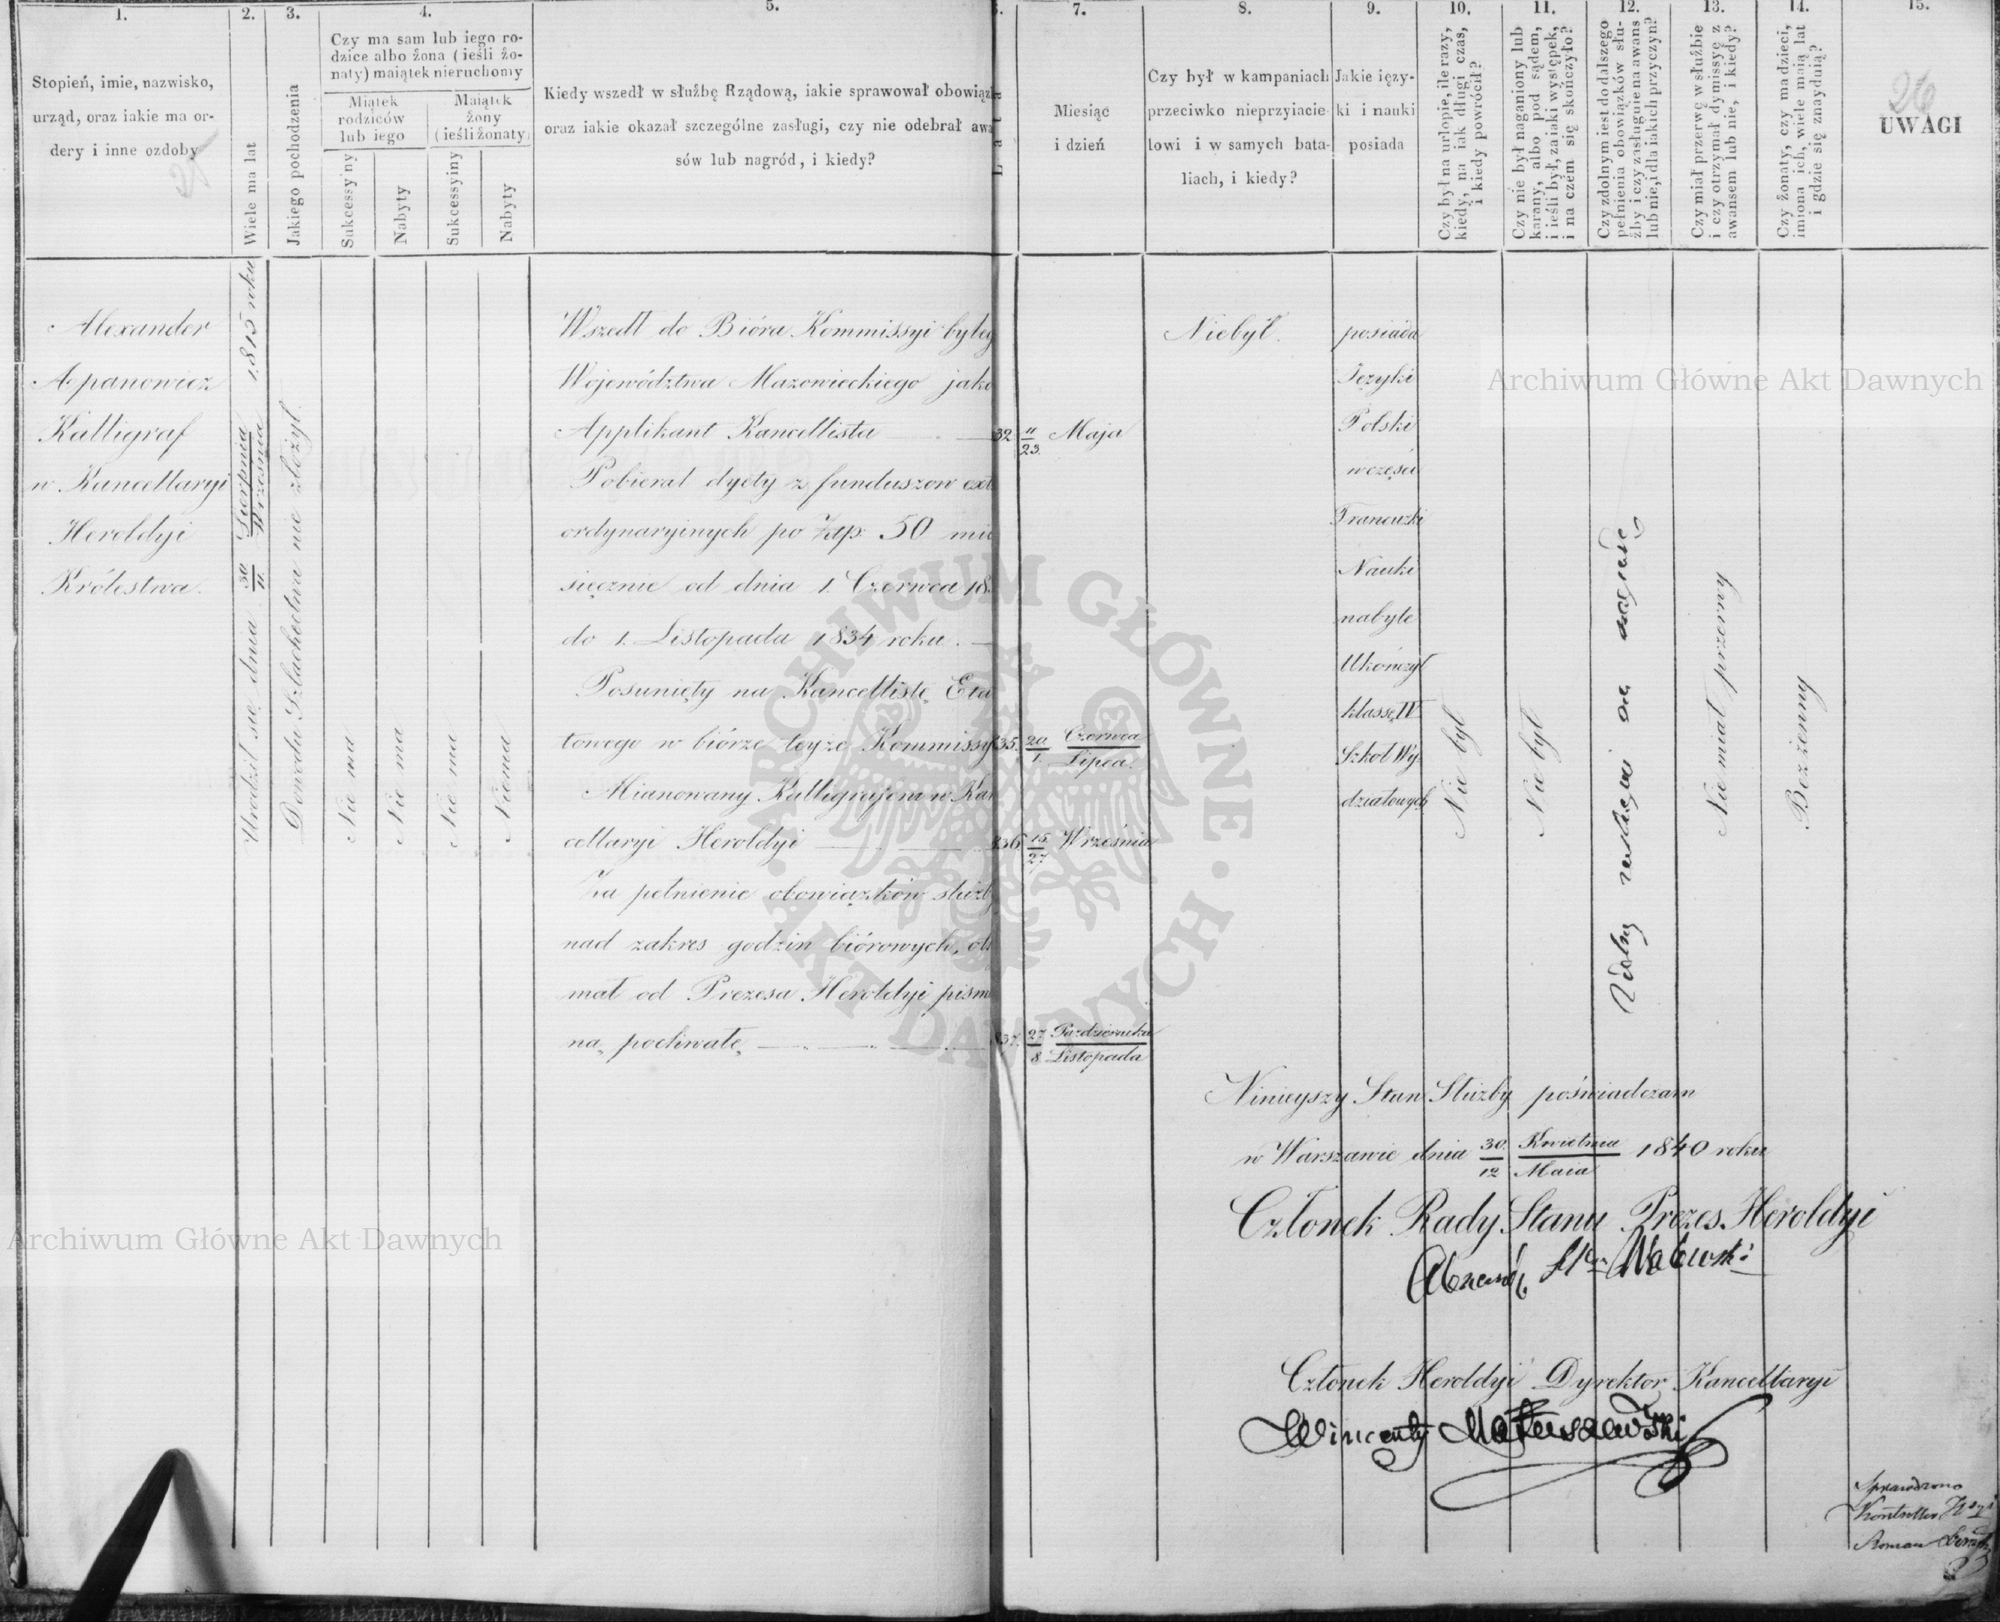 1.
Stopień, imie, nazwisko,
urząd, oraz iakie ma or-
dery i inne ozdoby
25
2.
Wiele ma lat
3.
Jakiego pochodzenia
4.
Czy ma sam lub iego ro-
dzice albo żona (ieśli żo-
naty) maiątek nieruchomy
Miątek
rodziców
lub iego
Maiątek
żony
(ieśli żonaty)
Sukcessyiny
Nabyty
Sukcessyiny
Nabyty
5.
Kiedy wszedł w służbę Rządową, iakie sprawował obowiąz
oraz iakie okazał szczególne zasługi, czy nie odebrał awa
sów lub nagród, i kiedy?
7.
Miesiąc
i dzień
8.
Czy był w kampaniach
przeciwko nieprzyiacie-
lowi i w samych bata-
liach, i kiedy?
9.
Jakie ięzy-
ki i nauki
posiada
10.
Czy był na urlopie, ile razy,
kiedy, na iak długi czas,
i kiedy powrócił?
11.
Czy nie był naganiony lub
karany, albo pod sądem,
i ieśli był, za iaki występek,
i na czém się skończyło?
12.
Czy zdolnym iest do dalszego
pełnienia obowiązków słu-
żby i czy zasługuie na awans
lub nie, i dla iakich przyczyn?
13.
Czy miał przerwę w służbie
i czy otrzymał dymissyę z
awansem lub nie, i kiedy?
14.
Czy żonaty, czy ma dzieci,
imiona ich, wiele maią lat
i gdzie się znayduią?
15.
26
UWAGI
Alexander
Apanowicz
Kalligraf
w Kancellaryi
Heroldyi
Królestwa.
Urodził się dnia 30/11 Sierpnia/Września 1815 roku
Dowodu Szlachectwa nie złożył.
Nie ma
Nie ma
Nie ma
Niema
Wszedł do Bióra Kommissyi byłeg
Województwa Mazowieckiego jako
Applikant Kancellista
32 11/23. Maja
Pobierał dyety z funduszow ext
ordynaryinych po Złtp. 50 mie
sięcznie od dnia 1. Czerwca 18
do 1. Listopada 1834 roku.
Posunięty na Kancellistę Eta
towego w biórze teyże Kommissy
35. 20/1. Czerwca/Lipca.
Mianowany Kalligrafem w Kan
cellaryi Heroldyi
836 15/27 Września
Za pełnienie obowiązków służb
nad zakres godzin biórowych, ot
mał od Prezesa Heroldyi pism
ną pochwałę
37. 27/8 Października/Listopada
Niebył.
posiada
Języki
Polski
wczęści
Francuzki
Nauki
nabyte
Ukończył
klassę IV
Szkół Wy-
działowych
Nie był
Nie był
Zdolny
na
Nie miał przerwy
Bezżenny
Ninieyszy Stan Służby poświadczam
w Warszawie dnia 30./12 Kwietnia/Maia 1840 roku
Członek Rady Stanu Prezes Heroldyi
Walewski
Członek Heroldyi Dyrektor Kancellaryi
Wincenty Matuszewski
Sprawdzono
Kontroller
Roman
Archiwum Główne Akt Dawnych
Archiwum Główne Akt Dawnych
ARCHIWUM GŁÓWNE · AKT DAWNYCH ·